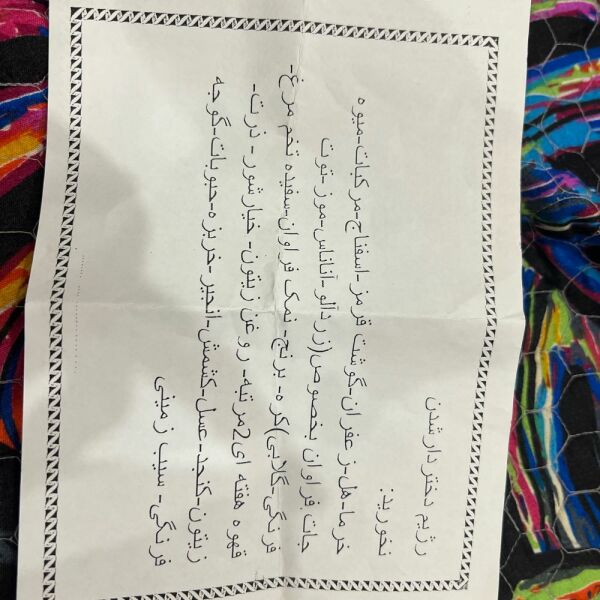 رژیم دختردار شدن
نخورید:
خرما-هل-زعفران-گوشت قرمز-اسفناج-مرکبات-میوه
جات فراوان بخصوص(زردالو-آناناس-موز-توت
فرنگی-گلابی)کره-برنج-نمک فراوان-سفیده تخم مرغ-
قهوه هفته ای2مرتبه-روغن زیتون-خیارشور-ذرت-
زیتون-کنجد-عسل-کشمش-انجیر-خربزه-حبوبات-گوجه
فرنگی-سیب زمینی